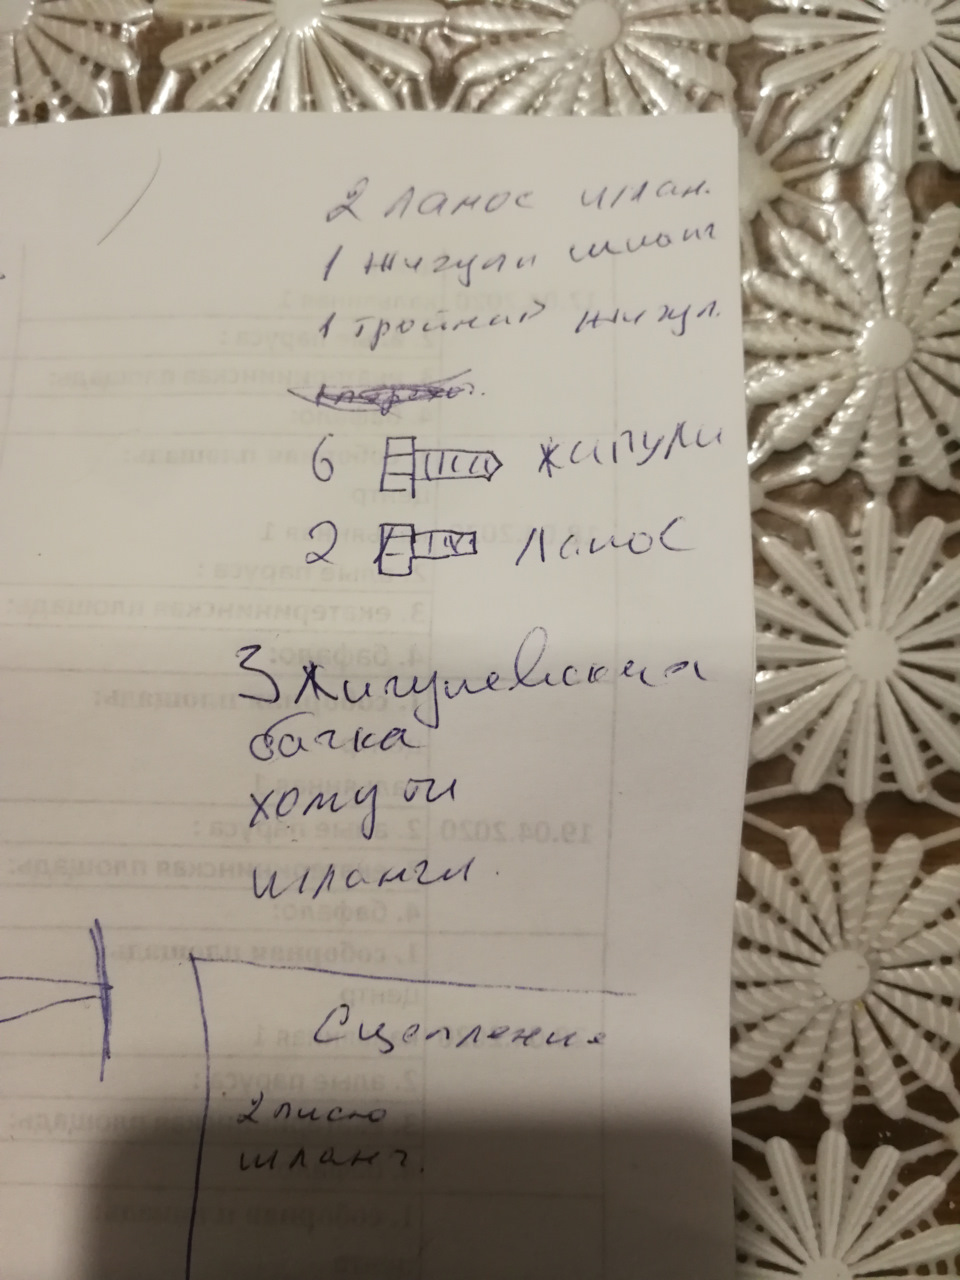 2 Ланос шлан.
1 Жигули шланг
1 тройник жигул.
6 жигули
2 Ланос
3 жигулевских
бачка
хомути
шланги.
Сцепление
2
шланг.
17.04.2020
2. алые паруса:
3. екатерининская площадь:
4. бафало:
соборная площадь:
центр
18.04.2020
2. алые паруса:
3. екатерининская площадь:
4. бафало:
1. соборная площадь:
19.04.2020 2. алые паруса:
екатерининская площадь:
4. бафало:
1. соборная площадь
центр
2. алые паруса:
3. екатерининская площадь:
1. соборная площадь: